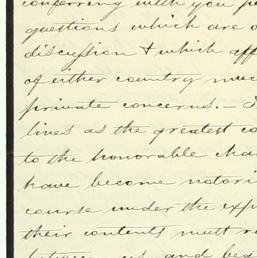 conferring with you
questions which are
discussion & which
of either country
private concerns. –
lines as the greatest
to the honorable
have become
course under the
their contents must
and